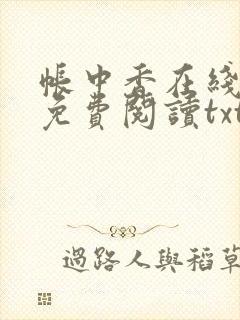 帳中香在綫
免費閱讀txt
過路人與稻草